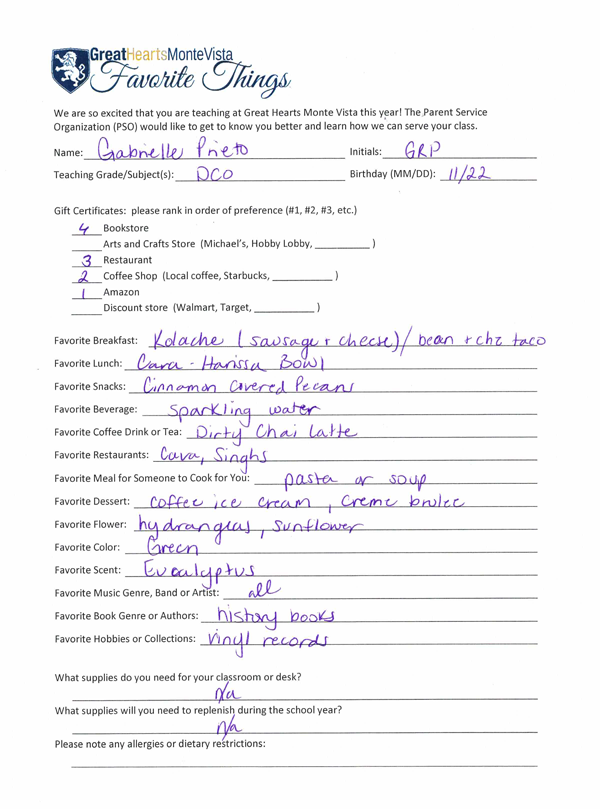 GreatHeartsMonteVista
Favorite Things
We are so excited that you are teaching at Great Hearts Monte Vista this year! The Parent Service
Organization (PSO) would like to get to know you better and learn how we can serve your class.
Name: Gabrielle Prieto Initials: GRP
Teaching Grade/Subject(s): DCO Birthday (MM/DD): 11/22
Gift Certificates: please rank in order of preference (#1, #2, #3, etc.)
4 Bookstore
Arts and Crafts Store (Michael's, Hobby Lobby, __________ )
3 Restaurant
2 Coffee Shop (Local coffee, Starbucks, __________ )
1 Amazon
Discount store (Walmart, Target, __________ )
Favorite Breakfast: Kolache (sausage + cheese)/ bean + chz taco
Favorite Lunch: Cava - Harissa Bowl
Favorite Snacks: Cinnamon Covered Pecans
Favorite Beverage: Sparkling water
Favorite Coffee Drink or Tea: Dirty Chai Latte
Favorite Restaurants: Cava, Singhs
Favorite Meal for Someone to Cook for You: pasta or soup
Favorite Dessert: coffee ice cream, creme brulee
Favorite Flower: hydrangeas, sunflower
Favorite Color: Green
Favorite Scent: Eucalyptus
Favorite Music Genre, Band or Artist: all
Favorite Book Genre or Authors: history books
Favorite Hobbies or Collections: vinyl records
What supplies do you need for your classroom or desk?
N/a
What supplies will you need to replenish during the school year?
N/a
Please note any allergies or dietary restrictions: